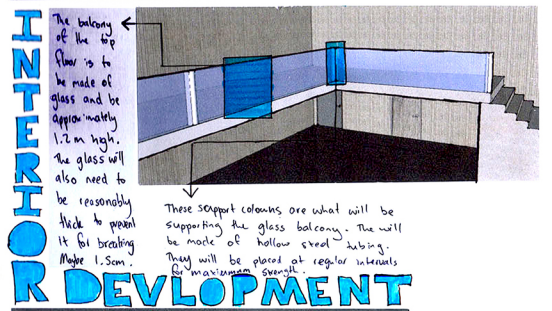 INTERIOR
The balcony
of the top
floor is to
be made of
glass and be
approximately
1.2m high.
The glass will
also need to
be reasonably
thick to prevent
it for breaking
Maybe 1.5cm.
These support coloums are what will be
supporting the glass balcony. The will
be made of hollow steel tubing.
They will be placed at regular intervals
for maximum strength.
DEVLOPMENT